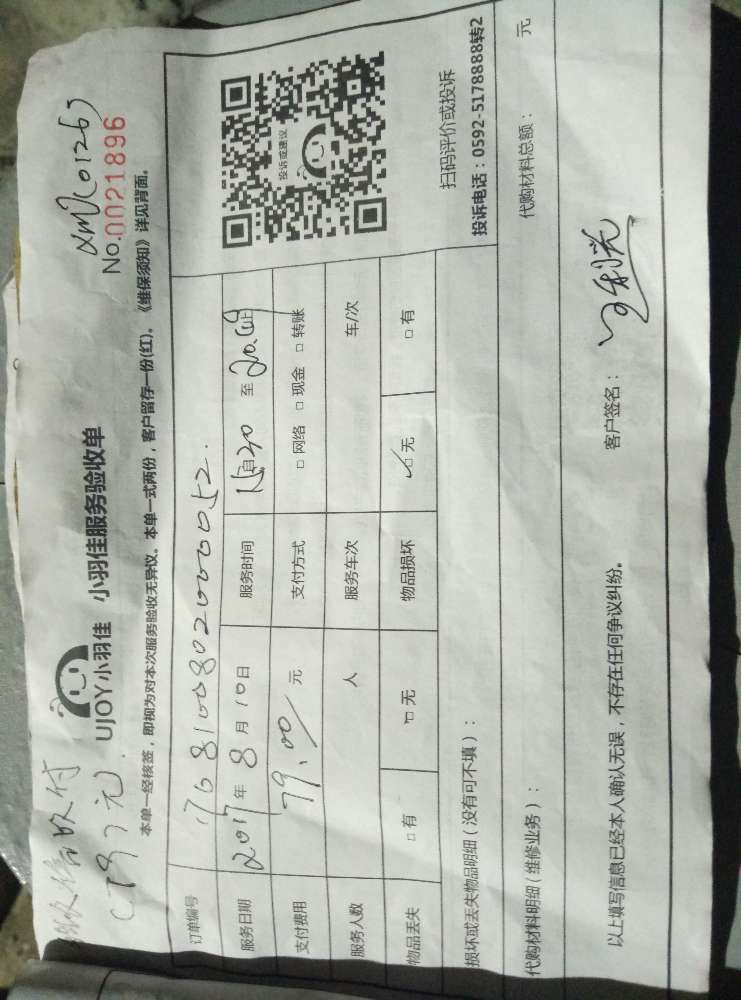 微信收付
(79)元.
UJOY小羽佳 小羽佳服务验收单
No.0021896
本单一经核签，即视为对本次服务验收无异议。本单一式两份，客户留存一份(红)。《维保须知》详见背面。
订单编号 17681008020000052.
服务日期 2017年 8月 10日 服务时间 至
支付费用 79.00 元 支付方式 □ 网络 □ 现金 □ 转账
服务人数 人 服务车次 车/次
物品丢失 □ 有 □ 无 物品损坏 □ 无 □ 有
投诉或建议
扫码评价或投诉
投诉电话：0592-5178888转2
损坏或丢失物品明细（没有可不填）：
代购材料明细（维修业务）： 代购材料总额： 元
以上填写信息已经本人确认无误，不存在任何争议纠纷。 客户签名：